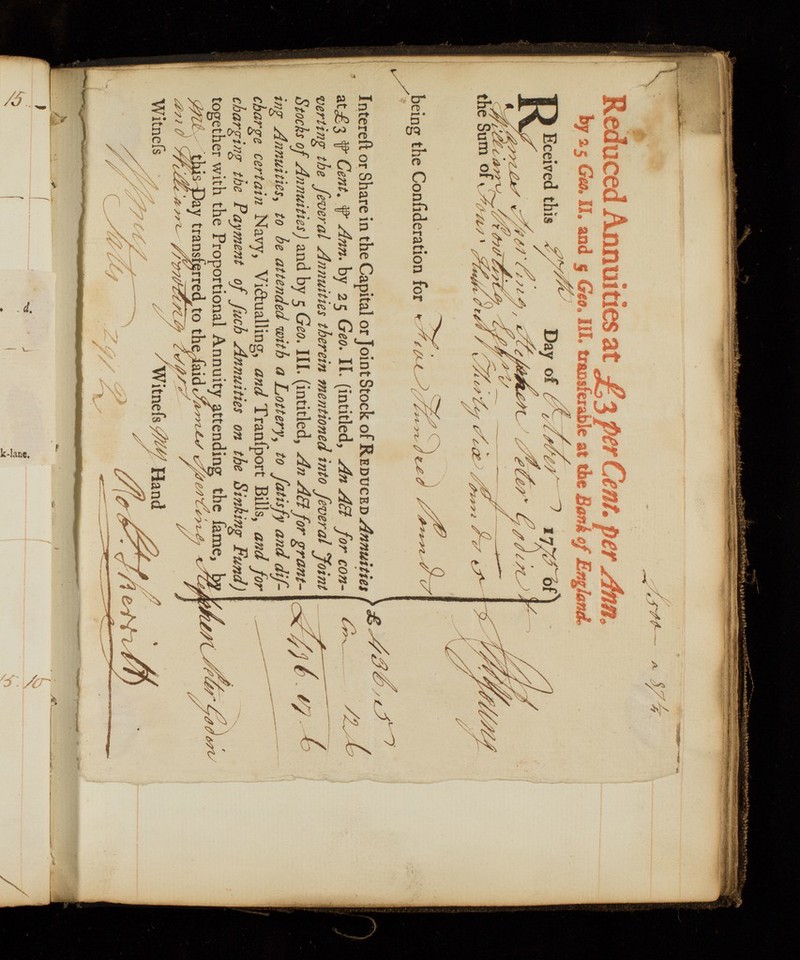 £500 a 87 ¼
Reduced Annuities at £3 per Cent. per Ann.
by 25 Geo. II. and 5 Geo. III. transferable at the Bank of England.
REceived this 27th Day of October 1775 of
James Sperling, Stephen Peter Godin &
William Bowling Esqrs
the Sum of Four Hundred Thirty six Pounds 5
being the Consideration for Five Hundred Pounds
Interest or Share in the Capital or Joint Stock of REDUCED Annuities
at £3 ⅌ Cent. ⅌ Ann. by 25 Geo. II. (intitled, An Act for con-
verting the several Annuities therein mentioned into several Joint
Stocks of Annuities) and by 5 Geo. III. (intitled, An Act for grant-
ing Annuities, to be attended with a Lottery, to satisfy and dis-
charge certain Navy, Victualling, and Transport Bills, and for
charging the Payment of such Annuities on the Sinking Fund)
together with the Proportional Annuity attending the same, by
me this Day transferred to the said James Sperling Stephen Peter Godin
and William Bowling Esqrs
Witness Witness my Hand
Robt. Sherritt
£ 436. 5
Com 12. 6
£436. 17. 6
15
. d.
k-lane.